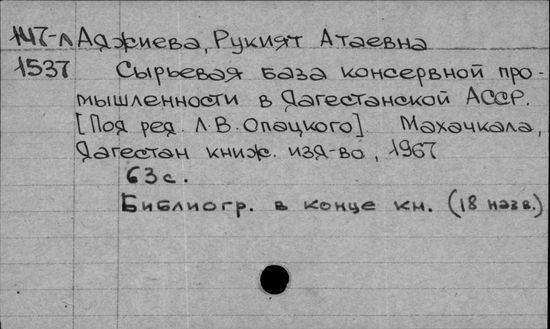 147-л Аджиева, Рукият Атаевна
1537 Сырьевая база консервной про-
мышленности в Дагестанской АССР.
[Под ред. Л.В. Опацкого] Махачкала,
Дагестан книж. изд-во, 1967
63 с.
Библиогр. в конце кн. (18 назв.)